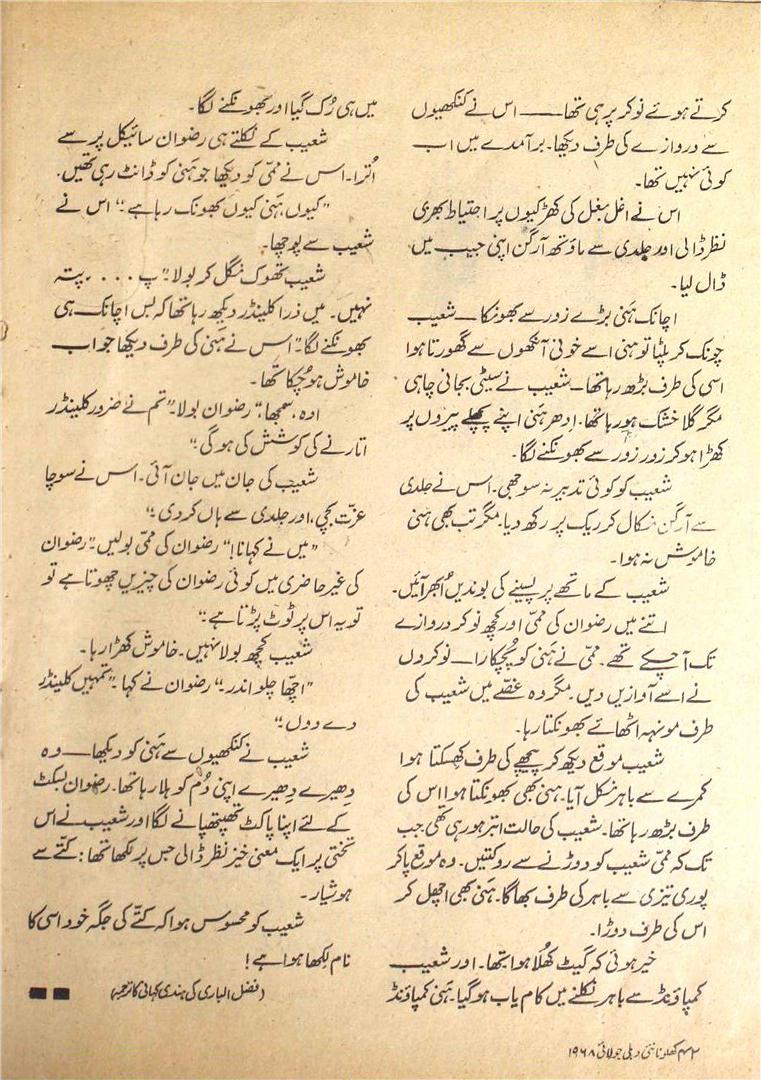 کرتے ہوئے نوکر پر ہی تھا—— اس نے کنکھیوں
سے دروازے کی طرف دیکھا۔ برآمدے میں اب
کوئی نہیں تھا۔
اس نے اغل بغل کی کھڑکیوں پر احتیاط بھری
نظر ڈالی اور جلدی سے ماؤتھ آرگن اپنی جیب میں
ڈال لیا۔
اچانک ہنی بڑے زور سے بھونکا—— شعیب
چونک کر پلٹا تو ہنی اسے خونی آنکھوں سے گھورتا ہوا
اسی کی طرف بڑھ رہا تھا— شعیب نے سیٹی بجانی چاہی
مگر گلا خشک ہو رہا تھا۔ اِدھر ہنی اپنے پچھلے پیروں پر
کھڑا ہو کر زور زور سے بھونکنے لگا۔
شعیب کو کوئی تدبیر نہ سوجھی۔ اس نے جلدی
سے آرگن نکال کر ریک پر رکھ دیا۔ مگر تب بھی ہنی
خاموش نہ ہوا۔
شعیب کے ماتھے پر پسینے کی بوندیں اُبھر آئیں۔
اتنے میں رضوان کی ممّی اور کچھ نوکر دروازے
تک آ چکے تھے۔ ممّی نے ہنی کو پُچکارا—— نوکروں
نے اسے آوازیں دیں۔ مگر وہ غصّے میں شعیب کی
طرف مونہہ اٹھائے بھونکتا رہا۔
شعیب موقع دیکھ کر پیچھے کی طرف کھسکتا ہوا
کمرے سے باہر نکل آیا۔ ہنی بھی بھونکتا ہوا اس کی
طرف بڑھ رہا تھا۔ شعیب کی حالت ابتر ہو رہی تھی۔ جب
تک کہ ممّی شعیب کو دوڑنے سے روکتیں۔ وہ موقع پا کر
پوری تیزی سے باہر کی طرف بھاگا۔ ہنی بھی اچھل کر
اس کی طرف دوڑا۔
خیر ہوئی کہ گیٹ کھُلا ہوا تھا۔ اور شعیب
کمپاؤنڈ سے باہر نکلنے میں کام یاب ہو گیا۔ ہنی کمپاؤنڈ
میں ہی رُک گیا اور بھونکنے لگا۔
شعیب کے نکلتے ہی رضوان سائیکل پر سے
اُترا۔ اس نے ممّی کو دیکھا جو ہنی کو ڈانٹ رہی تھیں۔
"کیوں، ہنی کیوں بھونک رہا ہے؟" اس نے
شعیب سے پوچھا۔
شعیب تھوک نگل کر بولا۔ "پ ۔۔۔۔ پتہ
نہیں۔ میں ذرا کلینڈر دیکھ رہا تھا کہ بس اچانک ہی
بھونکنے لگا۔" اس نے ہنی کی طرف دیکھا جو اب
خاموش ہو چُکا تھا۔
اوہ، سمجھا،" رضوان بولا۔ "تم نے ضرور کلینڈر
اتارنے کی کوشش کی ہوگی۔"
شعیب کی جان میں جان آئی۔ اس نے سوچا
عزّت بچی، اور جلدی سے ہاں کر دی۔"
"میں نے کہا نا!" رضوان کی ممّی بولیں۔ "رضوان
کی غیر حاضری میں کوئی رضوان کی چیزیں چھوتا ہے تو
تو یہ اس پر ٹوٹ پڑتا ہے۔"
شعیب کچھ بولا نہیں۔ خاموش کھڑا رہا۔
"اچّھا چلو اندر۔" رضوان نے کہا۔ "تمہیں کلینڈر
دے دوں۔"
شعیب نے کنکھیوں سے ہنی کو دیکھا—— وہ
دھیرے دھیرے اپنی دُم کو ہلا رہا تھا۔ رضوان بسکٹ
کے لئے اپنا پاکٹ تھپتھپانے لگا اور شعیب نے اس
تختی پر ایک معنی خیز نظر ڈالی جس پر لکھا تھا: کتّے سے
ہوشیار۔
شعیب کو محسوس ہوا کہ کتّے کی جگہ خود اسی کا
نام لکھا ہوا ہے!
(فضل الباری کی ہندی کہانی کا ترجمہ)
۴۲ کھلونا نئی دہلی جولائی ۱۹۶۸